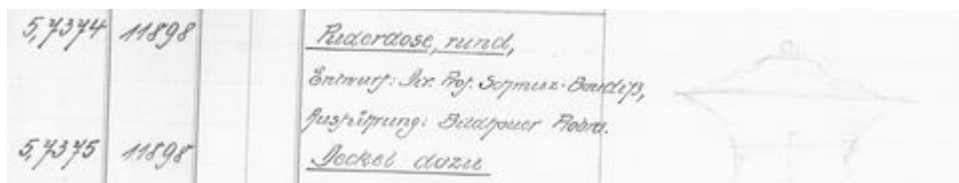 5,7374 11898 Puderdose, rund,
Entwurf: Dir. Prof. Schmuz-Baudiß,
Ausführung: Bildhauer Robra.
5,7375 11898 Deckel dazu